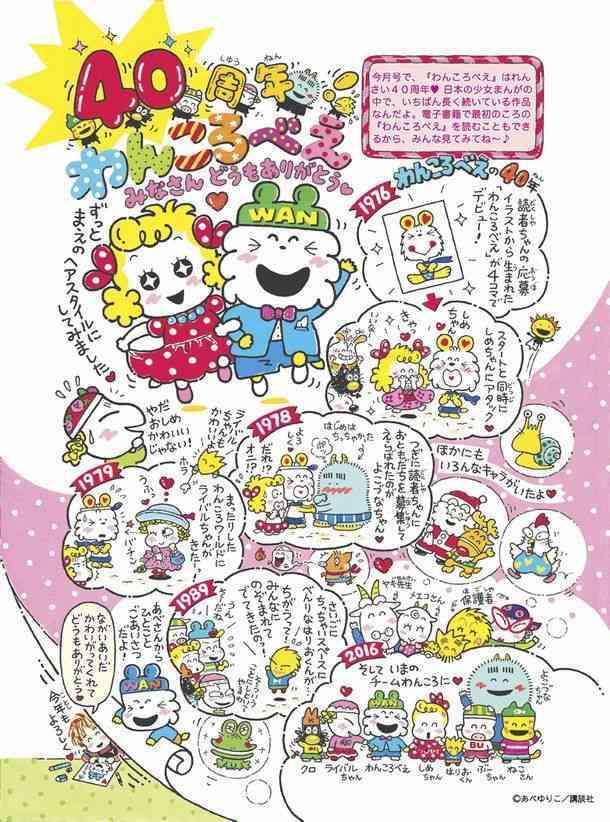 40周年
しゅう ねん
わんころべえ
みなさん どうもありがとう
今月号で、『わんころべえ』はれん
さい40周年♥ 日本の少女まんがの
中で、いちばん長く続いている作品
なんだよ。電子書籍で最初のころの
『わんころべえ』を読むこともでき
るから、みんな見てみてね〜♪
ずっと
まえの
ヘアスタイルに
してみました
WAN
わんころべえの40年
1976
読者ちゃんの応募
イラストから生まれた
「わんころべえ」が4コマで
デビュー!
スタートと同時に
しめちゃんにアタック
しめ
ちゃん
きゃ
やだ
おしめ
かわいい
じゃない!
1978
つぎに読者ちゃんに
おともだちを募集して
えらばれたのが
よこづなちゃん
はじめは
ちっちゃかった
よろ
しく
だれ!?
オニ!?
ほかにも
いろんなキャラがいたよ♥
1979
まったりした
わんころワールドに
ライバルちゃんが
きた!?
ライバル
ちゃんも
かわいい
ホラ
うふっ
バチ
1989
さいごに
ちっちゃいスペースに
べんりなはりおくんが…
ちがうって!
みんなに
のぞまれて
でてきたの!
うん
あべさんから
ひとこと
ごあいさつ
だよ!
WAN
ながいあいだ
かわいがってくれて
どうもありがとう
今年も
よろしく
ヤギ先生
メエコさん
保護者
ほごしゃ
2016
そして いまの
チームわんころに♥
よこづな
ちゃん
BU
クロ
ライバル
ちゃん
わんころべえ
しめ
ちゃん
はりお
くん
ぶー
ちゃん
ねこ
さん
©あべゆりこ/講談社